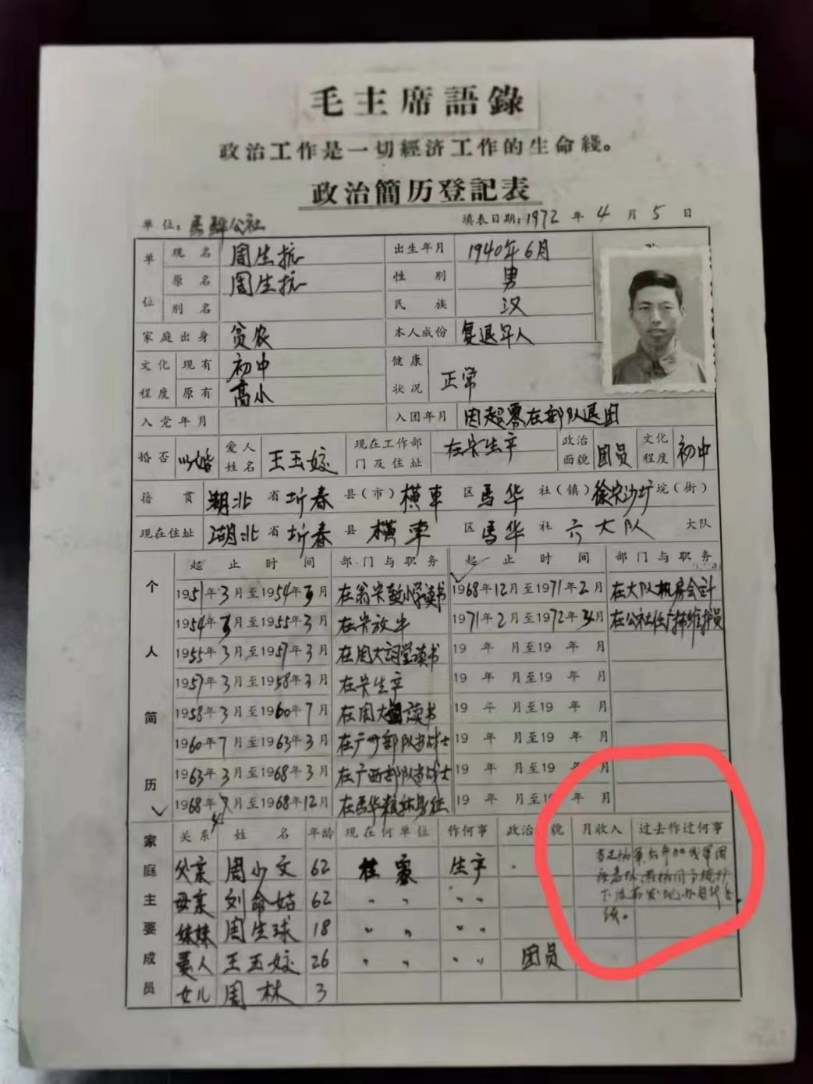 毛主席語錄
政治工作是一切經济工作的生命綫。
政治简历登記表
单位：馬华公社 填表日期：1972年4月5日
单位 现名 周生抗 出生年月 1940年6月
原名 周生抗 性别 男
别名 民族 汉
家庭出身 贫农 本人成份 复退军人
文化程度 现有 初中 健康状况 正常
原有 高小
入党年月 入团年月 因超零在部队退团
婚否 以婚 爱人姓名 王玉姣 现在工作部门及住址 在家生产 政治面貌 团员 文化程度 初中
籍贯 湖北省圻春县(市)横車区馬华社(镇) 垸(街)
现在住址 湖北省圻春县横車区馬华社六大队 大队
个人简历 起止时间 部门与职务 起止时间 部门与职务
1951年3月至1954年3月 1968年12月至1971年2月 在大队机房会计
1954年3月至1955年3月 在家放牛 1971年2月至1972年3月
1955年3月至1957年3月 在周大祠堂读书 19 年 月至19 年 月
1957年3月至1958年3月 在家生产 19 年 月至19 年 月
1958年3月至1960年7月 在周大 读书 19 年 月至19 年 月
1960年7月至1963年3月 在广州部队当战士 19 年 月至19 年 月
1963年3月至1968年3月 在广西部队当战士 19 年 月至19 年 月
1968年 月至1968年12月 19 年 月至19 年 月
家庭主要成员 关系 姓名 年龄 现在何单位 作何事 政治 貌 月收入 过去作过何事
父亲 周少文 62 生产
母亲 刘命姑 62 〃 〃 〃 〃
妹妹 周生球 18 〃 〃 〃 〃
爱人 王玉姣 26 〃 〃 〃 〃 团员
女儿 周林 3